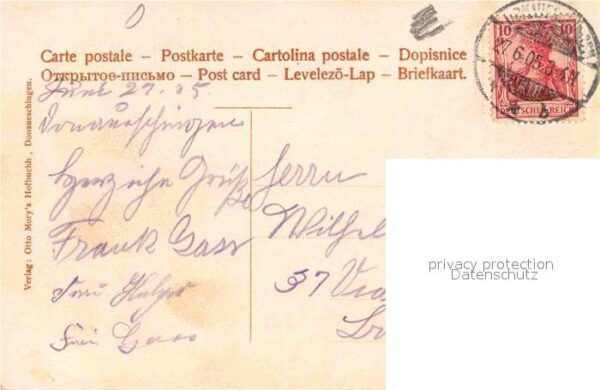 Carte postale – Postkarte – Cartolina postale – Dopisnice
Открытое-письмо – Post card – Levelező-Lap – Briefkaart.
Verlag: Otto Mory's Hofbuchh., Donaueschingen.
10 10
DEUTSCHES REICH
27.6.05.
June 27. 05.
Donaueschingen
Herzliche Grüße
Frank Gass
Frau
Gass
Herrn
Wilhel
37
privacy protection
Datenschutz